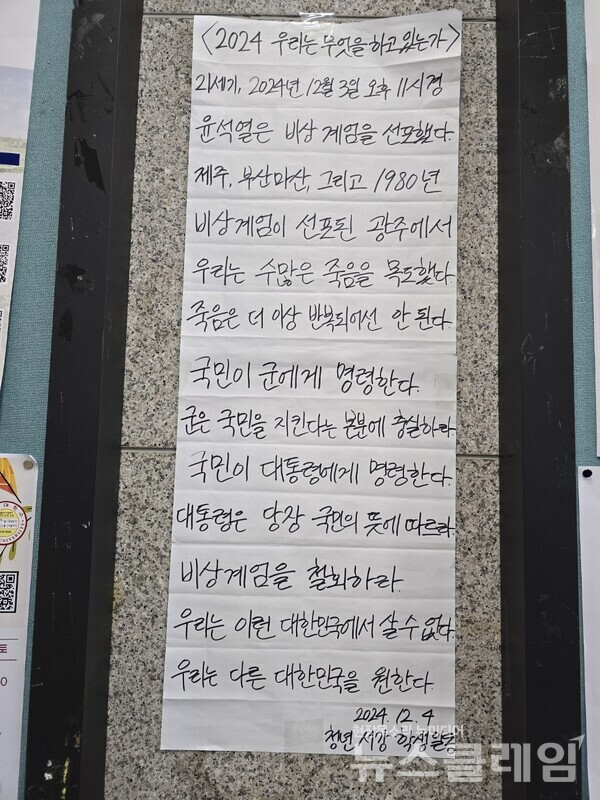 <2024 우리는 무엇을 하고 있는가>
21세기, 2024년 12월 3일 오후 11시경
윤석열은 비상계엄을 선포했다.
제주, 부산마산, 그리고 1980년
비상계엄이 선포된 광주에서
우리는 수많은 죽음을 목도했다.
죽음은 더 이상 반복되어선 안 된다.
국민이 군에게 명령한다.
군은 국민을 지킨다는 본분에 충실하라.
국민이 대통령에게 명령한다.
대통령은 당장 국민의 뜻에 따르라.
비상계엄을 철회하라.
우리는 이런 대한민국에서 살 수 없다.
우리는 다른 대한민국을 원한다.
2024. 12. 4
청년 서강 학생일동
뉴스클레임